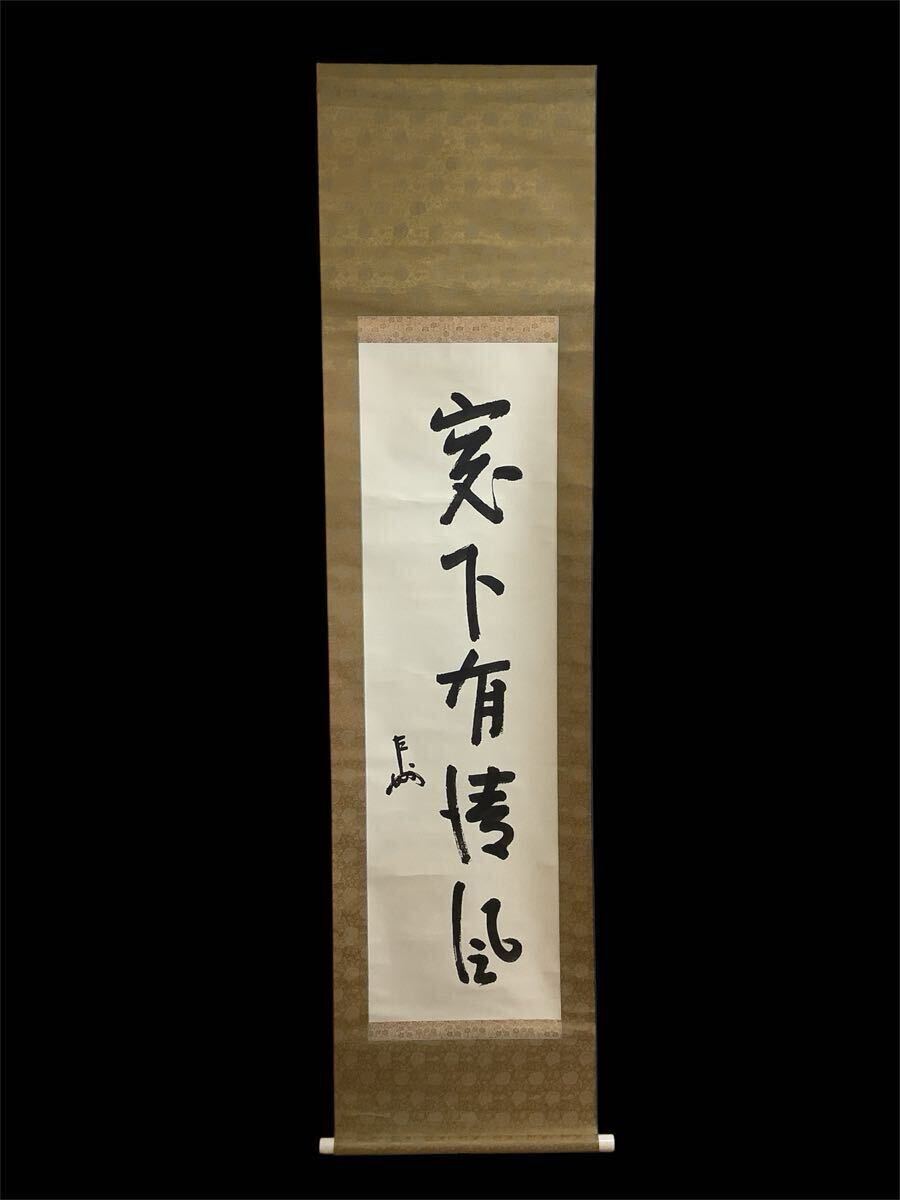 窓下有清風